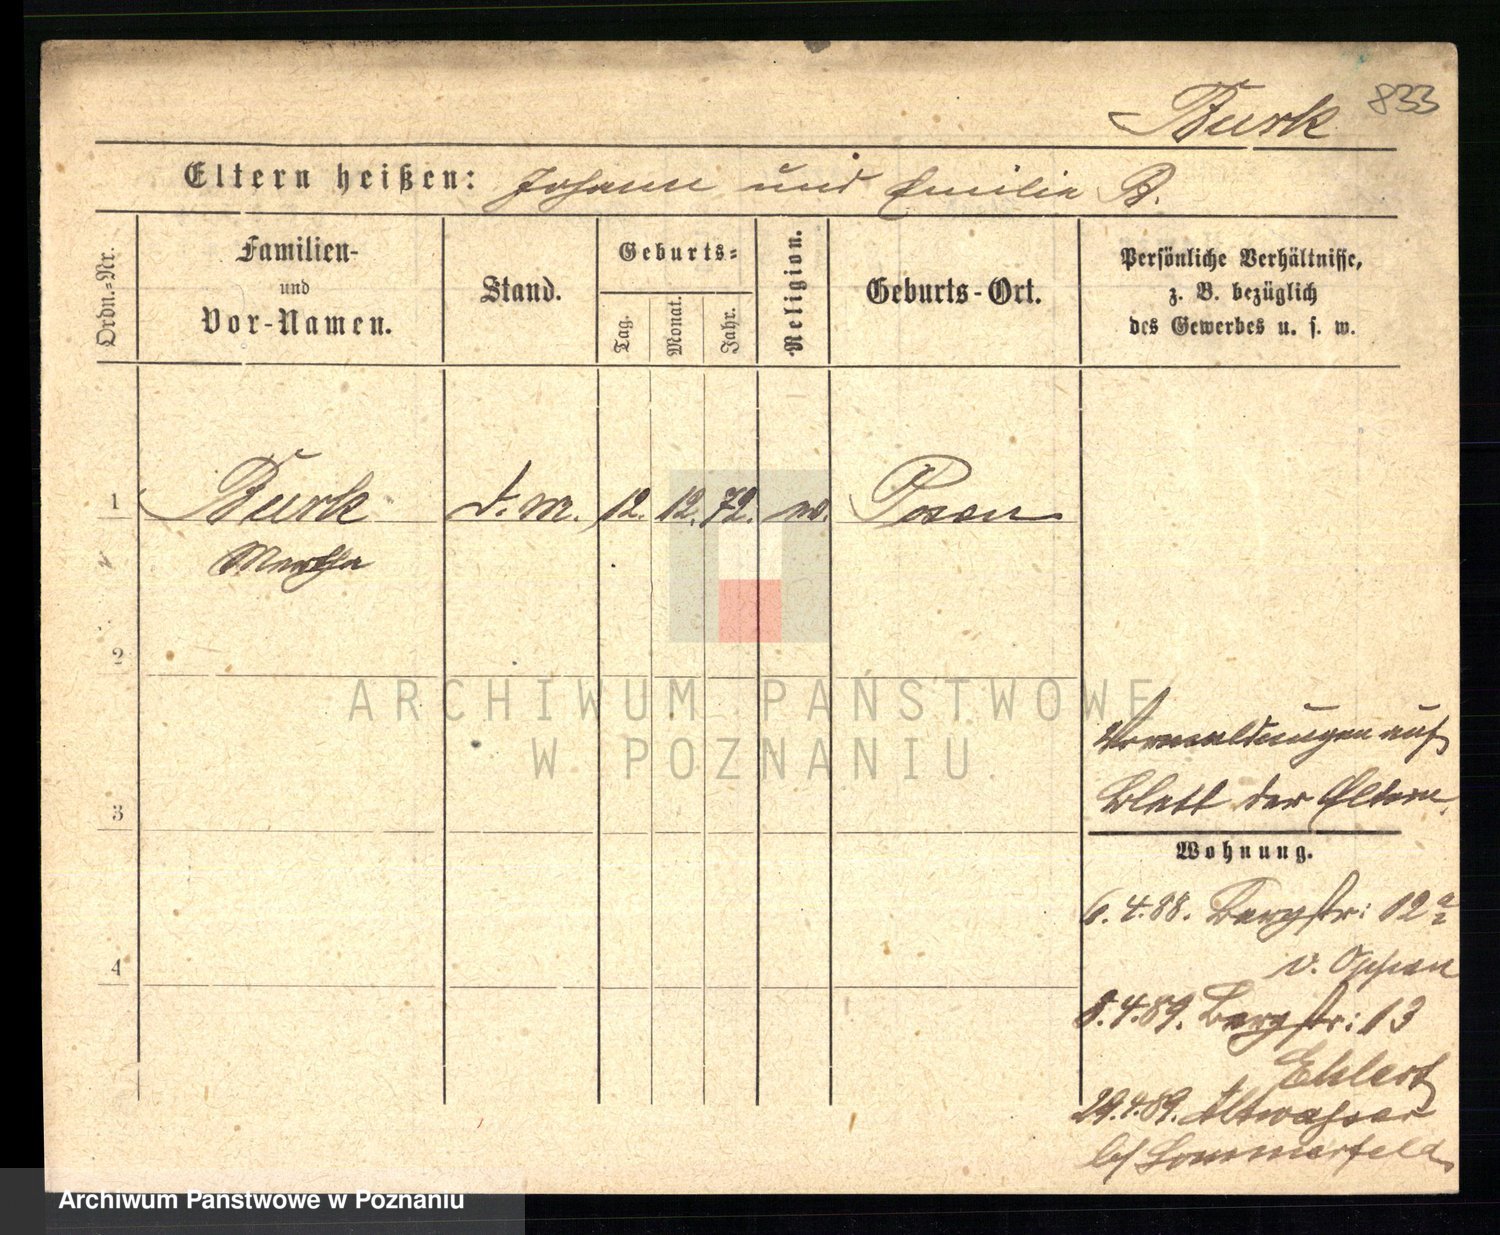 Burk 833
Eltern heißen: Johann und Emilie B.
Ordn.-Nr.
Familien-
und
Vor-Namen.
Stand.
Geburts-
Tag.
Monat.
Jahr.
Religion.
Geburts-Ort.
Persönliche Verhältnisse,
z. B. bezüglich
des Gewerbes u. s. w.
1 Burk d. M. 12. 12. 72. ev. Posen
Martha
2
3
4
Vormeldungen auf
Blatt der Eltern.
Wohnung.
6. 4. 88. Bergstr: 12a
v. Oppen
8. 4. 89. Bergstr: 13
Ehlert
29. 4. 89. Altwasser
b/ Sommerfeld.
ARCHIWUM PAŃSTWOWE
W POZNANIU
Archiwum Państwowe w Poznaniu